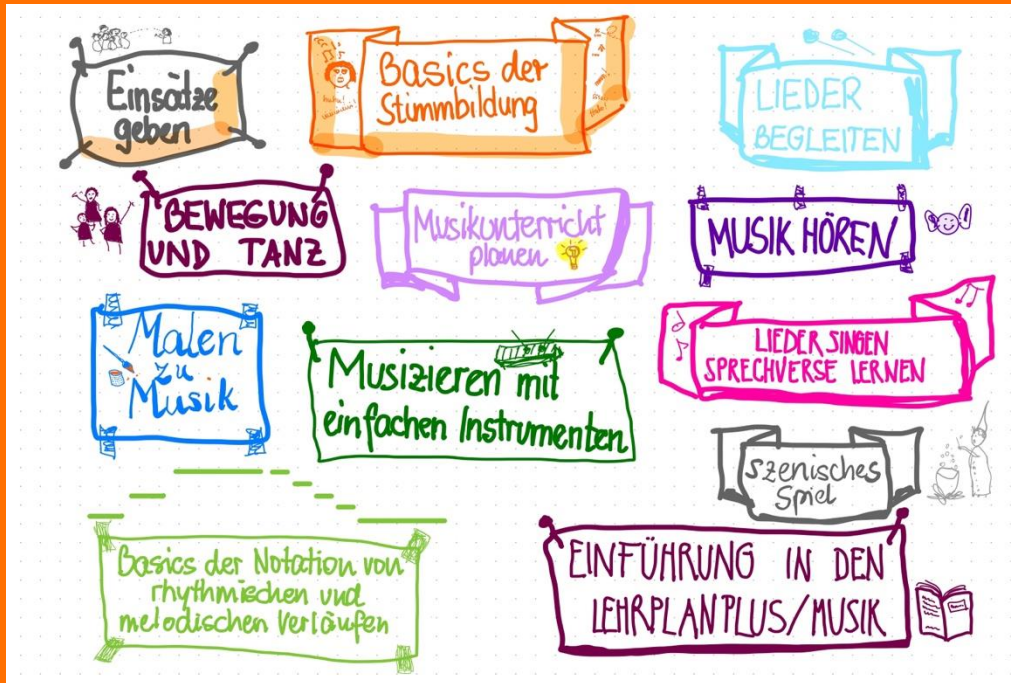 Einsätze
geben
Basics der
Stimmbildung
LIEDER
BEGLEITEN
BEWEGUNG
UND TANZ
Musikunterricht
planen
MUSIK HÖREN
Malen
zu
Musik
Musizieren mit
einfachen Instrumenten
LIEDER SINGEN
SPRECHVERSE LERNEN
Szenisches
Spiel
Basics der Notation von
rhythmischen und
melodischen Verläufen
EINFÜHRUNG IN DEN
LEHRPLANPLUS/MUSIK